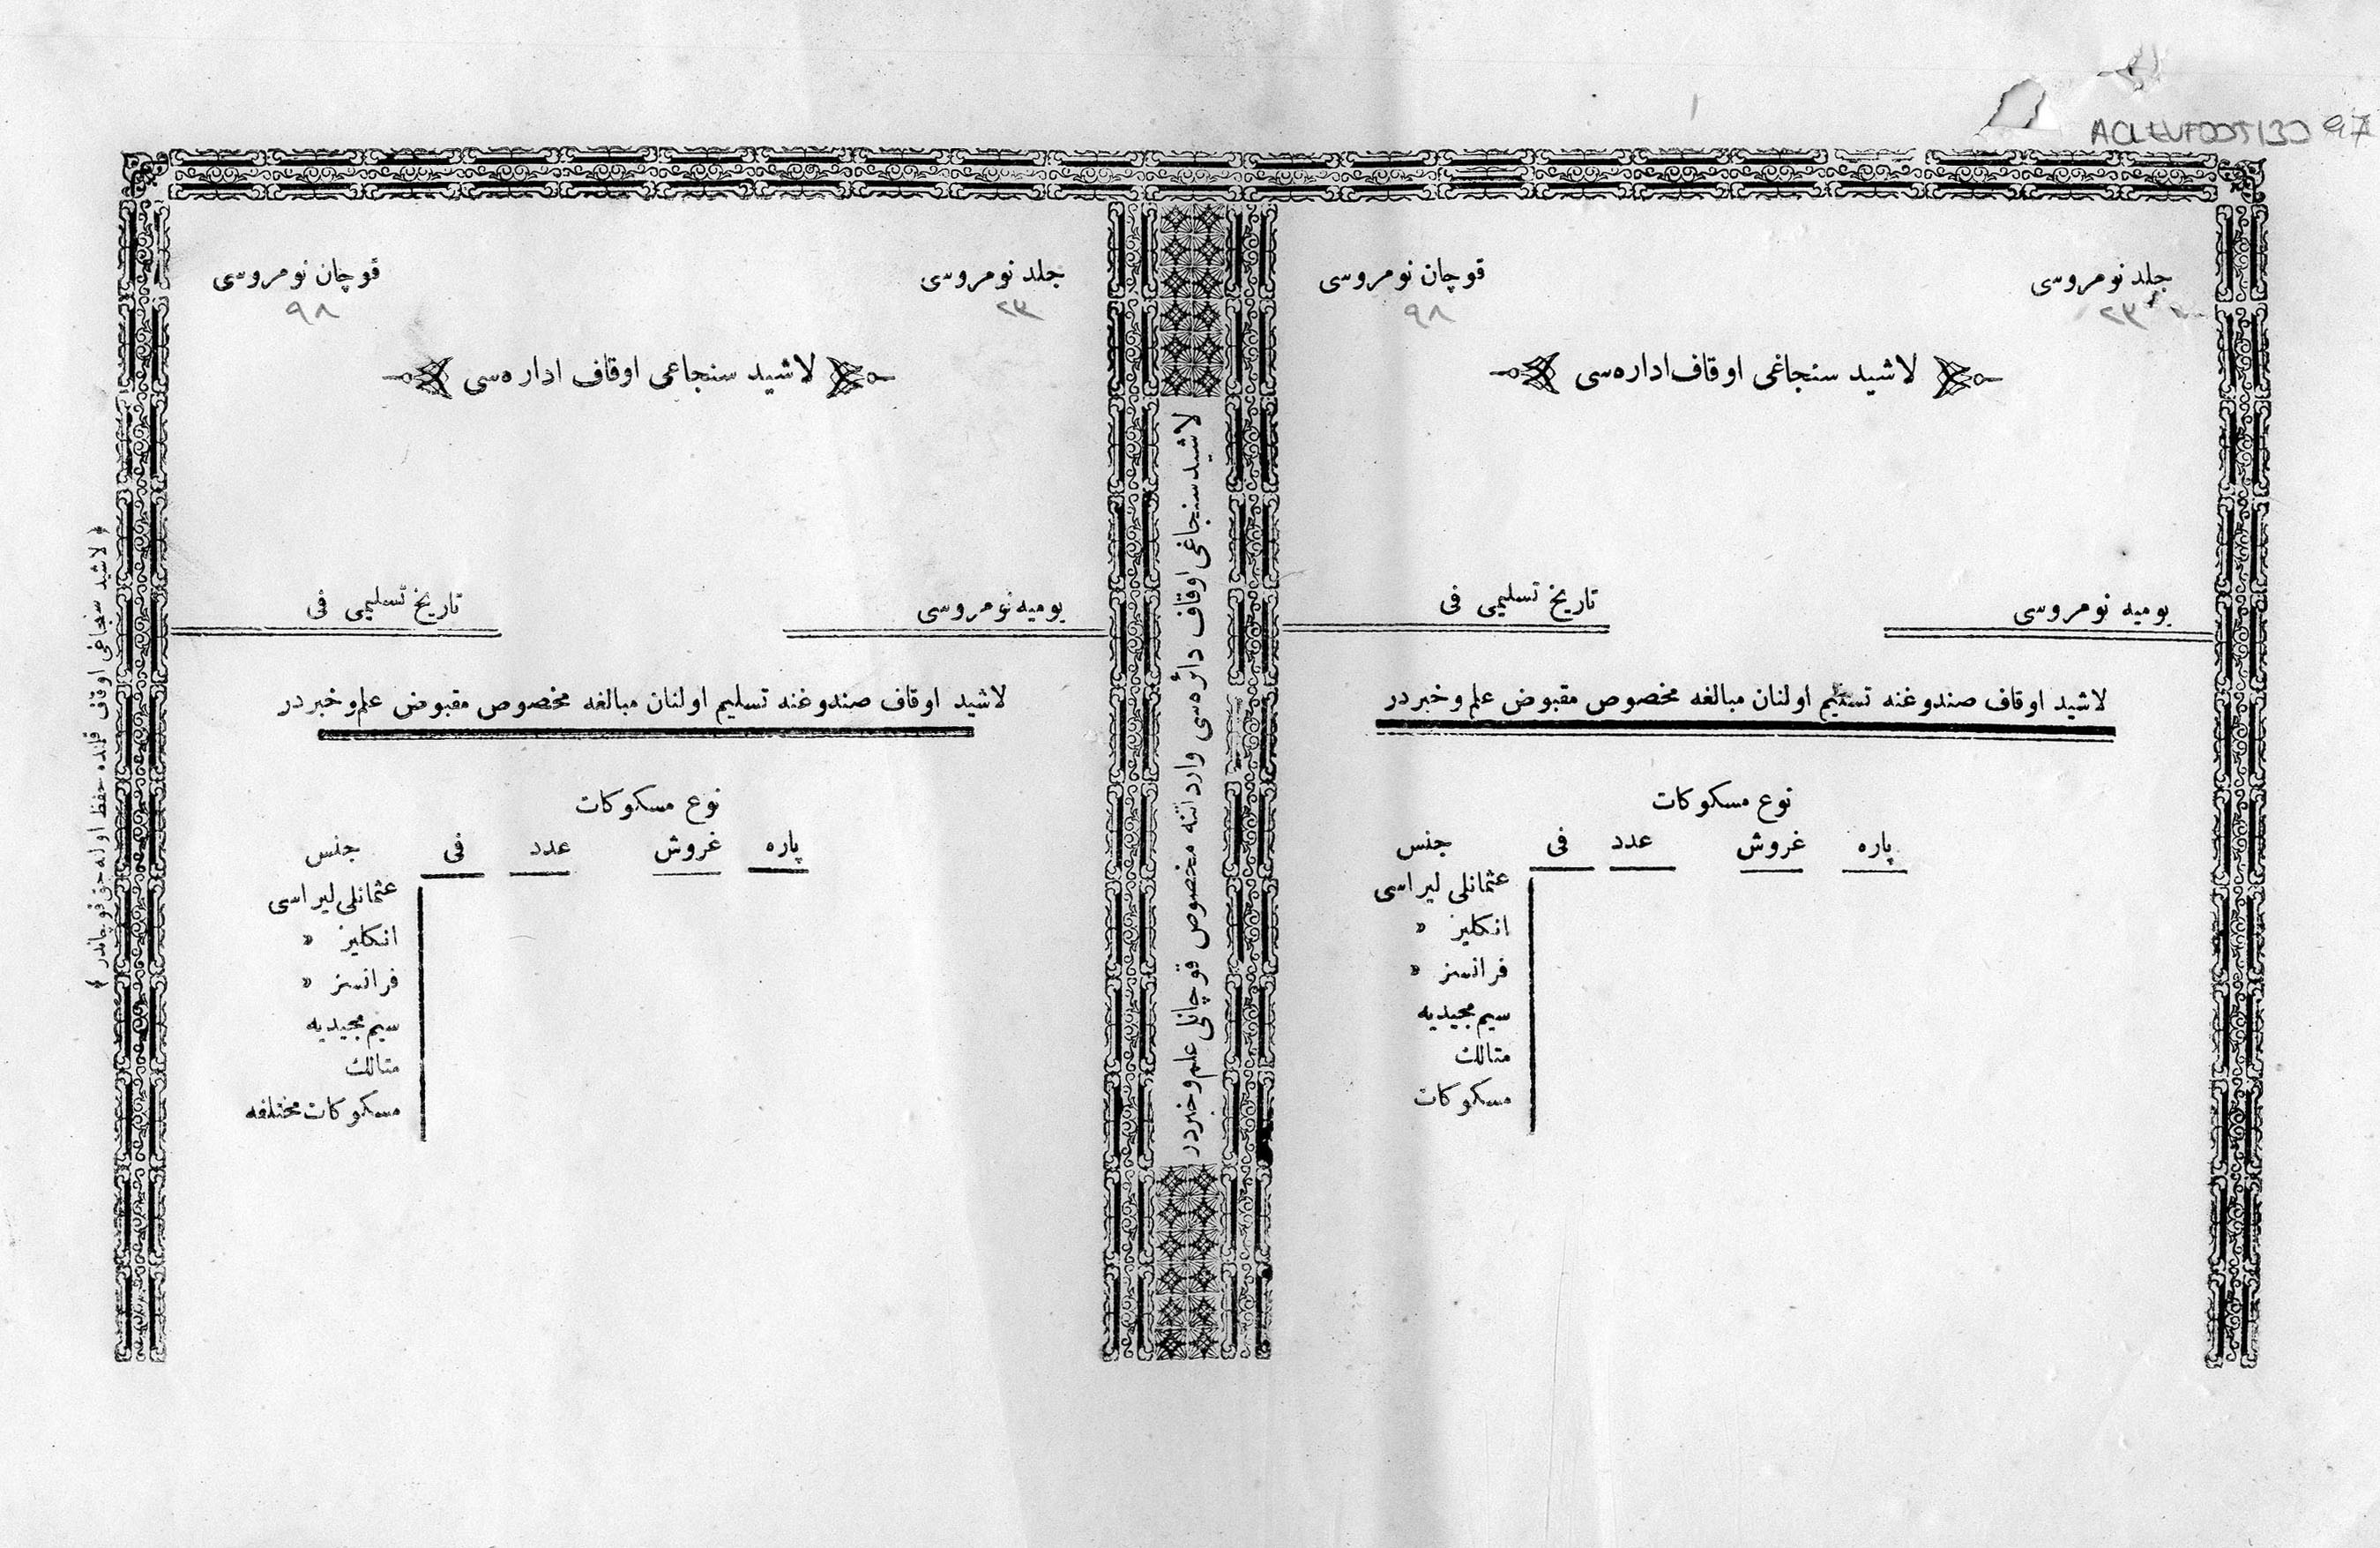 ACLEVF00513097
جلد نومروسی
٢٣
قوچان نومروسی
٩٨
لاشید سنجاغی اوقاف اداره‌سی
یومیه نومروسی
تاریخ تسلیمی فی
لاشید اوقاف صندوغنه تسلیم اولنان مبالغه مخصوص مقبوض علم و خبردر
نوع مسکوکات
پاره غروش عدد فی جنس
عثمانلی لیراسی
انکلیز »
فرانسز »
سیم مجیدیه
متالك
مسکوکات
لاشید سنجاغی اوقاف دائره‌سی وارداتنه مخصوص قوچانلی علم و خبردر
جلد نومروسی
٢٣
قوچان نومروسی
٩٨
لاشید سنجاغی اوقاف اداره‌سی
یومیه نومروسی
تاریخ تسلیمی فی
لاشید اوقاف صندوغنه تسلیم اولنان مبالغه مخصوص مقبوض علم و خبردر
نوع مسکوکات
پاره غروش عدد فی جنس
عثمانلی لیراسی
انکلیز »
فرانسز »
سیم مجیدیه
متالك
مسکوکات مختلفه
﴿ لاشید سنجاغی اوقاف قلنده حفظ اوله‌جق قوچاندر ﴾